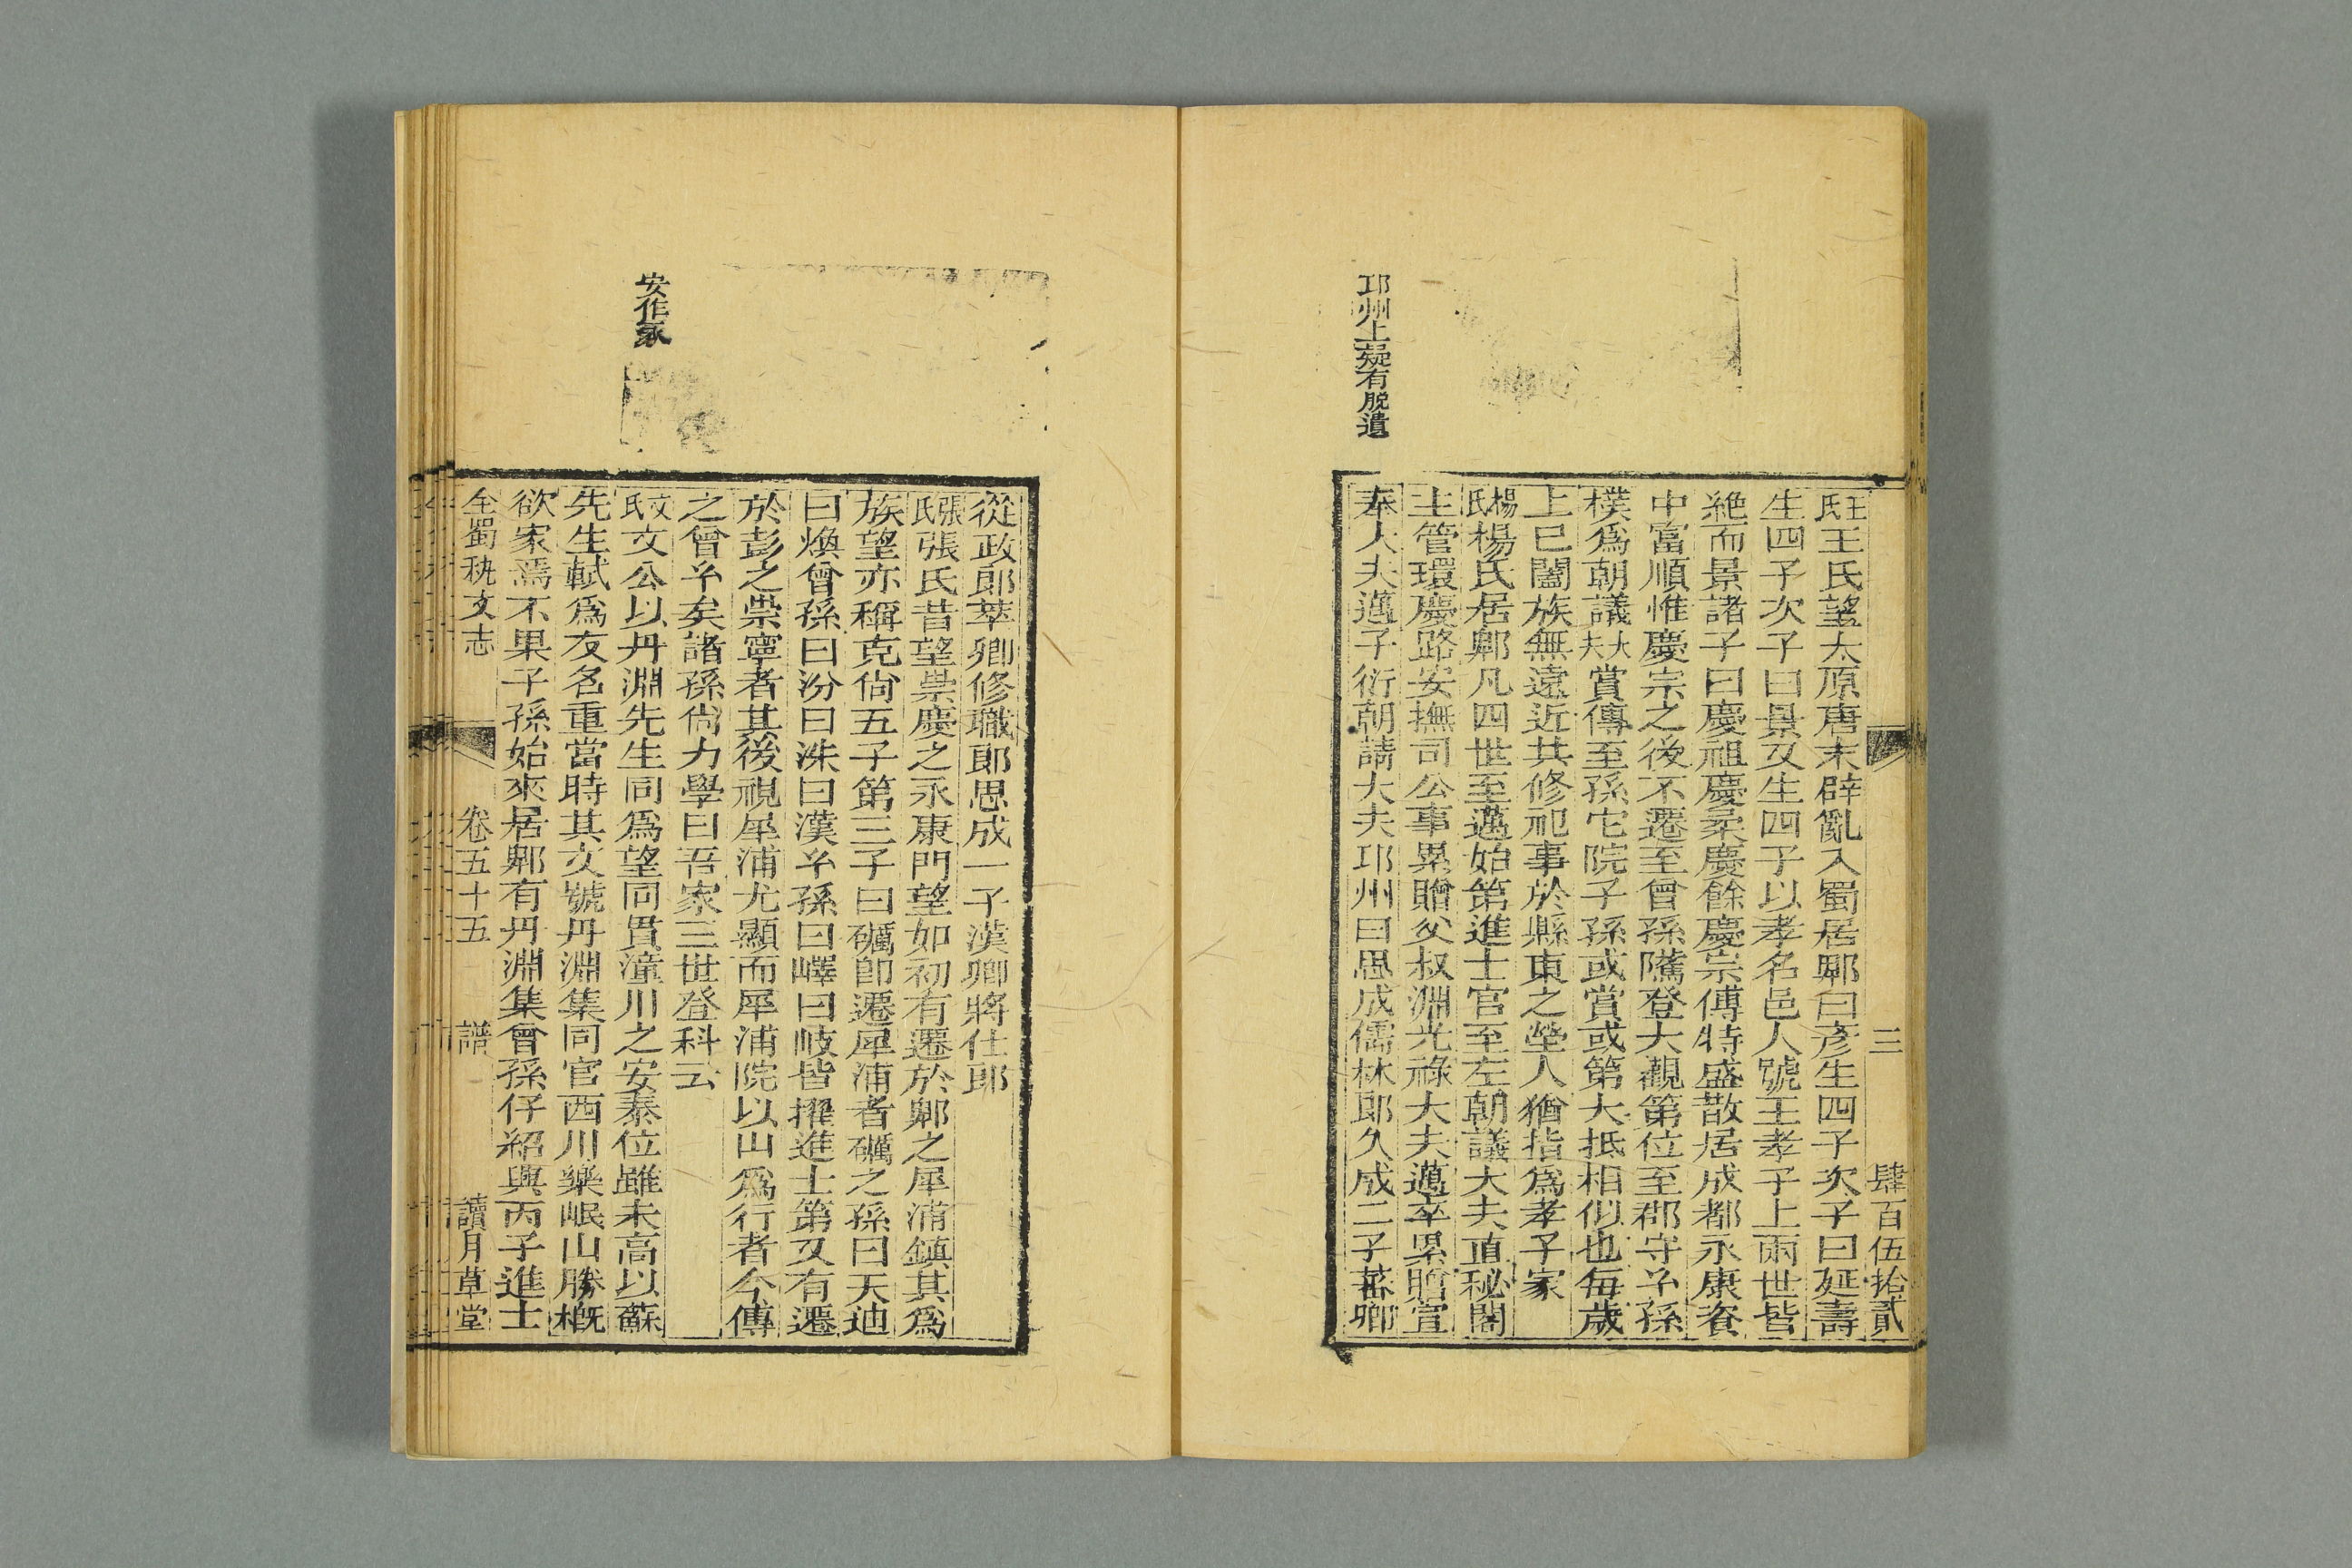 三 肆百伍拾貳
王氏王氏望太原唐末辟亂入蜀居郫曰彥生四子次子曰延壽
生四子次子曰景又生四子以孝名邑人號王孝子上兩世皆
絶而景諸子曰慶祖慶柔慶餘慶宗傅特盛散居成都永康資
中富順惟慶宗之後不遷至曾孫隲登大觀第位至郡守糸孫
樸爲朝議大夫賞傅至孫它院子孫或賞或第大抵相似也每歲
上巳闔族無遠近其修祀事於縣東之塋人猶指爲孝子家
楊氏楊氏居郫凡四世至邁始第進士官至左朝議大夫直秘閣
主管環慶路安撫司公事累贈父叔淵光祿大夫邁卒累贈宣
奉大夫邁子衍朝請大夫邛州曰思成儒林郎久成二子蕃卿
邛州上疑有脫遺
從政郎萃卿修職郎思成一子漢卿將仕郎
張氏張氏昔望崇慶之永康門望如初有遷於郫之犀浦鎮其爲
族望亦稱克尙五子第三子曰礪卽遷犀浦者礪之孫曰天迪
曰煥曾孫曰汾曰洙曰漢糸孫曰嶧曰岐皆擢進士第又有遷
於彭之崇寧者其後視犀浦尤顯而犀浦院以山爲行者今傳
之曾糸矣諸孫尙力學曰吾家三世登科云
文氏文公以丹淵先生同爲望同貫潼川之安泰位雖未高以蘇
先生軾爲友名重當時其文號丹淵集同官西川樂岷山勝槪
欲家焉不果子孫始來居郫有丹淵集曾孫仔紹興丙子進士
安作家
全蜀秇文志 卷五十五 譜 讀月草堂